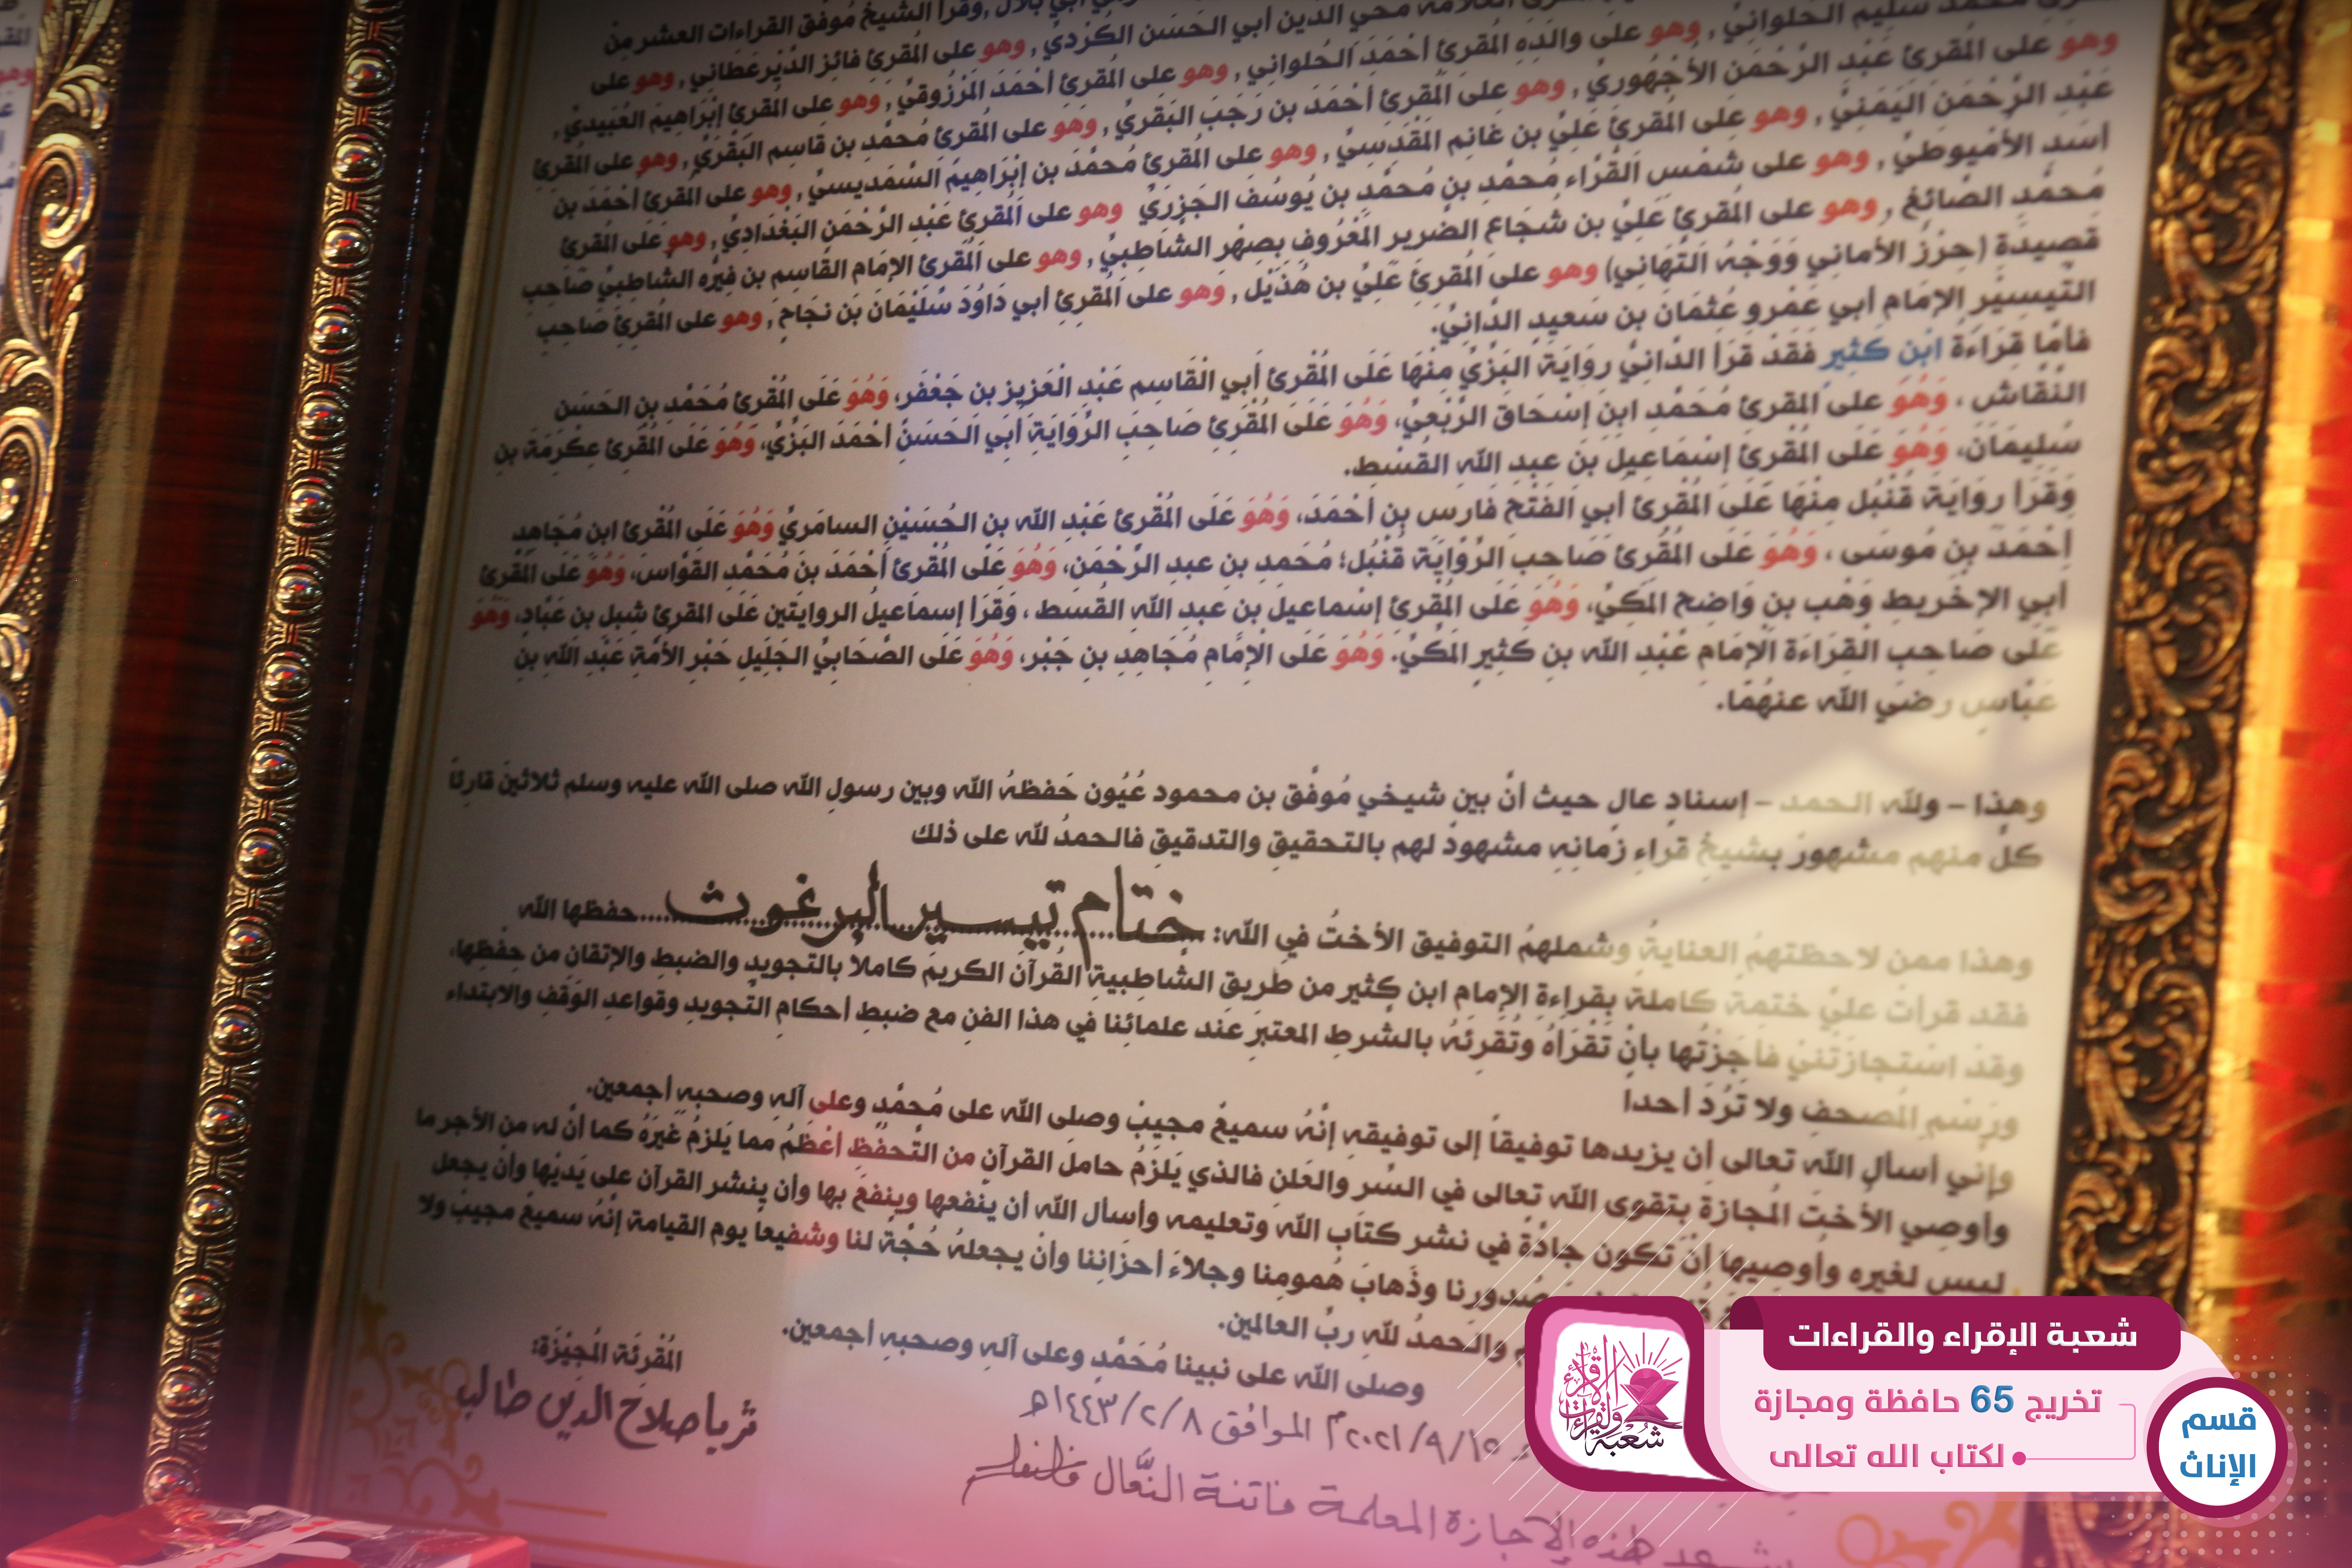 وقرأ الشيخ مُوفق القراءات العشر من
محمد سليم الحلواني , وهو على والده المقرئ أحْمَدَ الحُلواني , وهو على المُقرئ أحْمَدَ المَرْزُوقي , وهو على المقرئ إبْرَاهِيمَ العُبَيدي ,
وهو على المُقرئ عَبْدِ الرَّحْمَن الأُجْهُوري , وهو على المُقرئ أحْمَدَ بن رَجَبَ البَقَري , وهو على المُقرئ مُحمَّدِ بن قاسِم البَقَري , وهو على المُقرئ
عَبْدِ الرَّحْمَن اليَمَني , وهو على المُقرئ عَليِّ بن غانِم المَقْدَسِيِّ , وهو على المُقرئ مُحمَّدَ بن إبْرَاهِيمَ السَّمَديسيِّ , وهو على المُقرئ أحْمَدَ بن
أسَد الأُمْيوطيِّ , وهو على شَمْس القُرَّاء مُحمَّدِ بن مُحمَّدِ بن يُوسُفَ الجَزَريِّ وهو على المُقرئ عَبْدِ الرَّحْمَن البَغْدَاديِّ , وهو على المُقرئ
مُحمَّد الصَّائغ , وهو على المُقرئ عَليِّ بن شُجَاع الضَّرير المَعْرُوفِ بصِهْر الشَّاطِبيِّ , وهو على المُقرئ الإمَام القَاسِم بن فِيرُّه الشَّاطِبيِّ صَاحِب
قَصِيدَة (حِرْزُ الأَمَاني وَوَجْهُ التَّهَاني) وهو على المُقرئ عَليِّ بن هُذَيْل , وهو على المُقرئ أبي دَاوُدَ سُلَيْمَانَ بَن نجَاح , وهو على المُقرئ صَاحِب
التَّيسِير الإمَام أبي عَمْرو عُثمَانَ بن سَعيدٍ الدَّانيِّ.
فأمَّا قِرَاءَةُ ابْن كَثيرٍ فَقَدْ قَرَأ الدَّانيُّ روَايَةَ البَزِّيِّ مِنْهَا عَلَى المُقْرئ أبي القَاسِم عَبْد الْعَزيز بن جَعْفَر، وَهُوَ عَلَى المُقْرئ مُحَمَّدِ بن الحَسَن
النَّقَّاش ، وَهُوَ على المقرئ مُحَمَّدِ ابن إسْحَاقَ الرَّبْعيِّ، وَهُوَ عَلَى المُقْرئ صَاحِبَ الرِّوَايَةِ أبي الحَسَنُ أحْمَدَ البَزِّيِّ، وَهُوَ عَلَى المُقْرئ عِكْرِمَةَ بن
سُليمَانَ، وَهُوَ عَلَى المُقْرئ إسْمَاعِيلَ بن عبدِ الله القُسْطِ.
وَقَرَأ روَايَةَ قُنْبُل مِنْهَا عَلَى المُقْرئ أبي الفَتْحِ فَارِس بن أحْمَدَ، وَهُوَ عَلَى المُقْرئ عَبْدِ الله بن الحُسَيْن السامَريِّ وَهُوَ عَلَى المُقْرئ ابن مُجَاهِدٍ
أحْمَدَ بن مُوسَى ، وَهُوَ عَلَى المُقْرئ صَاحِب الرِّوَايَةِ قُنْبُل؛ مُحَمَدِ بن عبدِ الرَّحْمَن، وَهُوَ عَلَى المُقْرئ أحْمَدَ بن مُحَمَّدِ القَوَّاس، وَهُوَ عَلَى المُقْرئ
أبي الإخَريطِ وَهْب بن وَاضِح المَكيِّ، وَهُوَ عَلَى المُقرئ إسْماعيل بن عبدِ اللهِ القُسطِ ، وَقَرَأ إسمَاعيلُ الروايتين عَلَى المقرئ شبل بن عَبَّادٍ، وَهُوَ
عَلى صَاحِب القِرَاءَة الإمَام عَبْدِ الله بن كَثير المَكيِّ. وَهُوَ عَلَى الْإِمَام مُجَاهِدِ بن جَبْر، وَهُوَ عَلَى الصَّحَابيِّ الجَلِيل حَبْر الأمَّةِ عَبْدِ اللهِ بن
عَبَّاسٍ رضي الله عنهُمَا.
وهذا – ولله الحمد – إسنادٍ عالٍ حيث أنَّ بين شيخي مُوفَّق بن محمود عُيُون حَفظهُ الله وبين رسولِ الله صلى الله عليه وسلم ثلاثينَ قارئاً
كلٍّ منهم مشهورٌ بشيخُ قراءِ زمانِهِ مشهودٌ لهم بالتحقيق والتدقيقِ فالحمدُ لله على ذلك
وهذا ممن لاحظتهمُ العنايةُ وشملهمُ التوفيق الأختُ في الله: ختام تيسير البرغوث حفظها الله
فقد قرأت عليَّ ختمة كاملة بقراءةِ الإمامِ ابن كثير من طريقِ الشَّاطبيةِ القُرآنَ الكريمَ كاملاً بالتجويدِ والضبطِ والإتقان من حِفْظِها،
وقدْ اسْتجازَتْنيْ فأجَزْتُها بأنْ تَقْرَأهُ وتُقرئهُ بالشَّرطِ المعتبرَ عند علمائِنا في هذا الفنِ مع ضبطِ أحكامِ التَّجويدِ وقواعدِ الوَقفِ والابتداء
ورَسْمِ المُصحفِ ولا تَرُدَّ أحداً
وإني أسأل الله تعالى أن يزيدها توفيقاً إلى توفيقهِ إنَّهُ سميعٌ مجيبٌ وصلى الله على مُحمَّدٍ وعلى آلهِ وصحبهِ أجمعين.
وأوصِي الأختَ المُجازةَ بتقوى الله تعالى في السِّر والعَلن فالذي يَلزَمُ حاملَ القرآن من التَّحفُّظِ أعْظمُ مما يَلزمُ غيْرَهُ كما أنَّ له من الأجر ما
ليس لغيره وأوصِيها أنْ تكون جادَّةً في نشر كتابِ اللهِ وتعليمه وأسأل الله أن ينْفعها وينفعَ بها وأن ينشر القرآن على يَديْها وأن يجعل
صُدورِنا وذَهابَ هُمومِنا وجلاءَ أحزاننا وأنْ يجعلهُ حُجَّةً لنا وشفيعاً يوم القيامة إنَّهُ سميعٌ مجيبٌ ولا
والحمدُ للهِ ربِّ العالمين.
وصلى الله على نبينا مُحَمَّدٍ وعلى آلهِ وصحبهِ أجمعين.
المُقْرئَة المُجِيْزَة:
ثريا صلاح الدين طالب
٢٠٢١/٩/١٥م الموافق ١٤٤٣/٢/٨هـ
هذه الإجازة المعلمة فاتنة النَّعَّال
شعبة الإقراء والقراءات
تخريج 65 حافظة ومجازة
لكتاب الله تعالى
قسم
الإناث